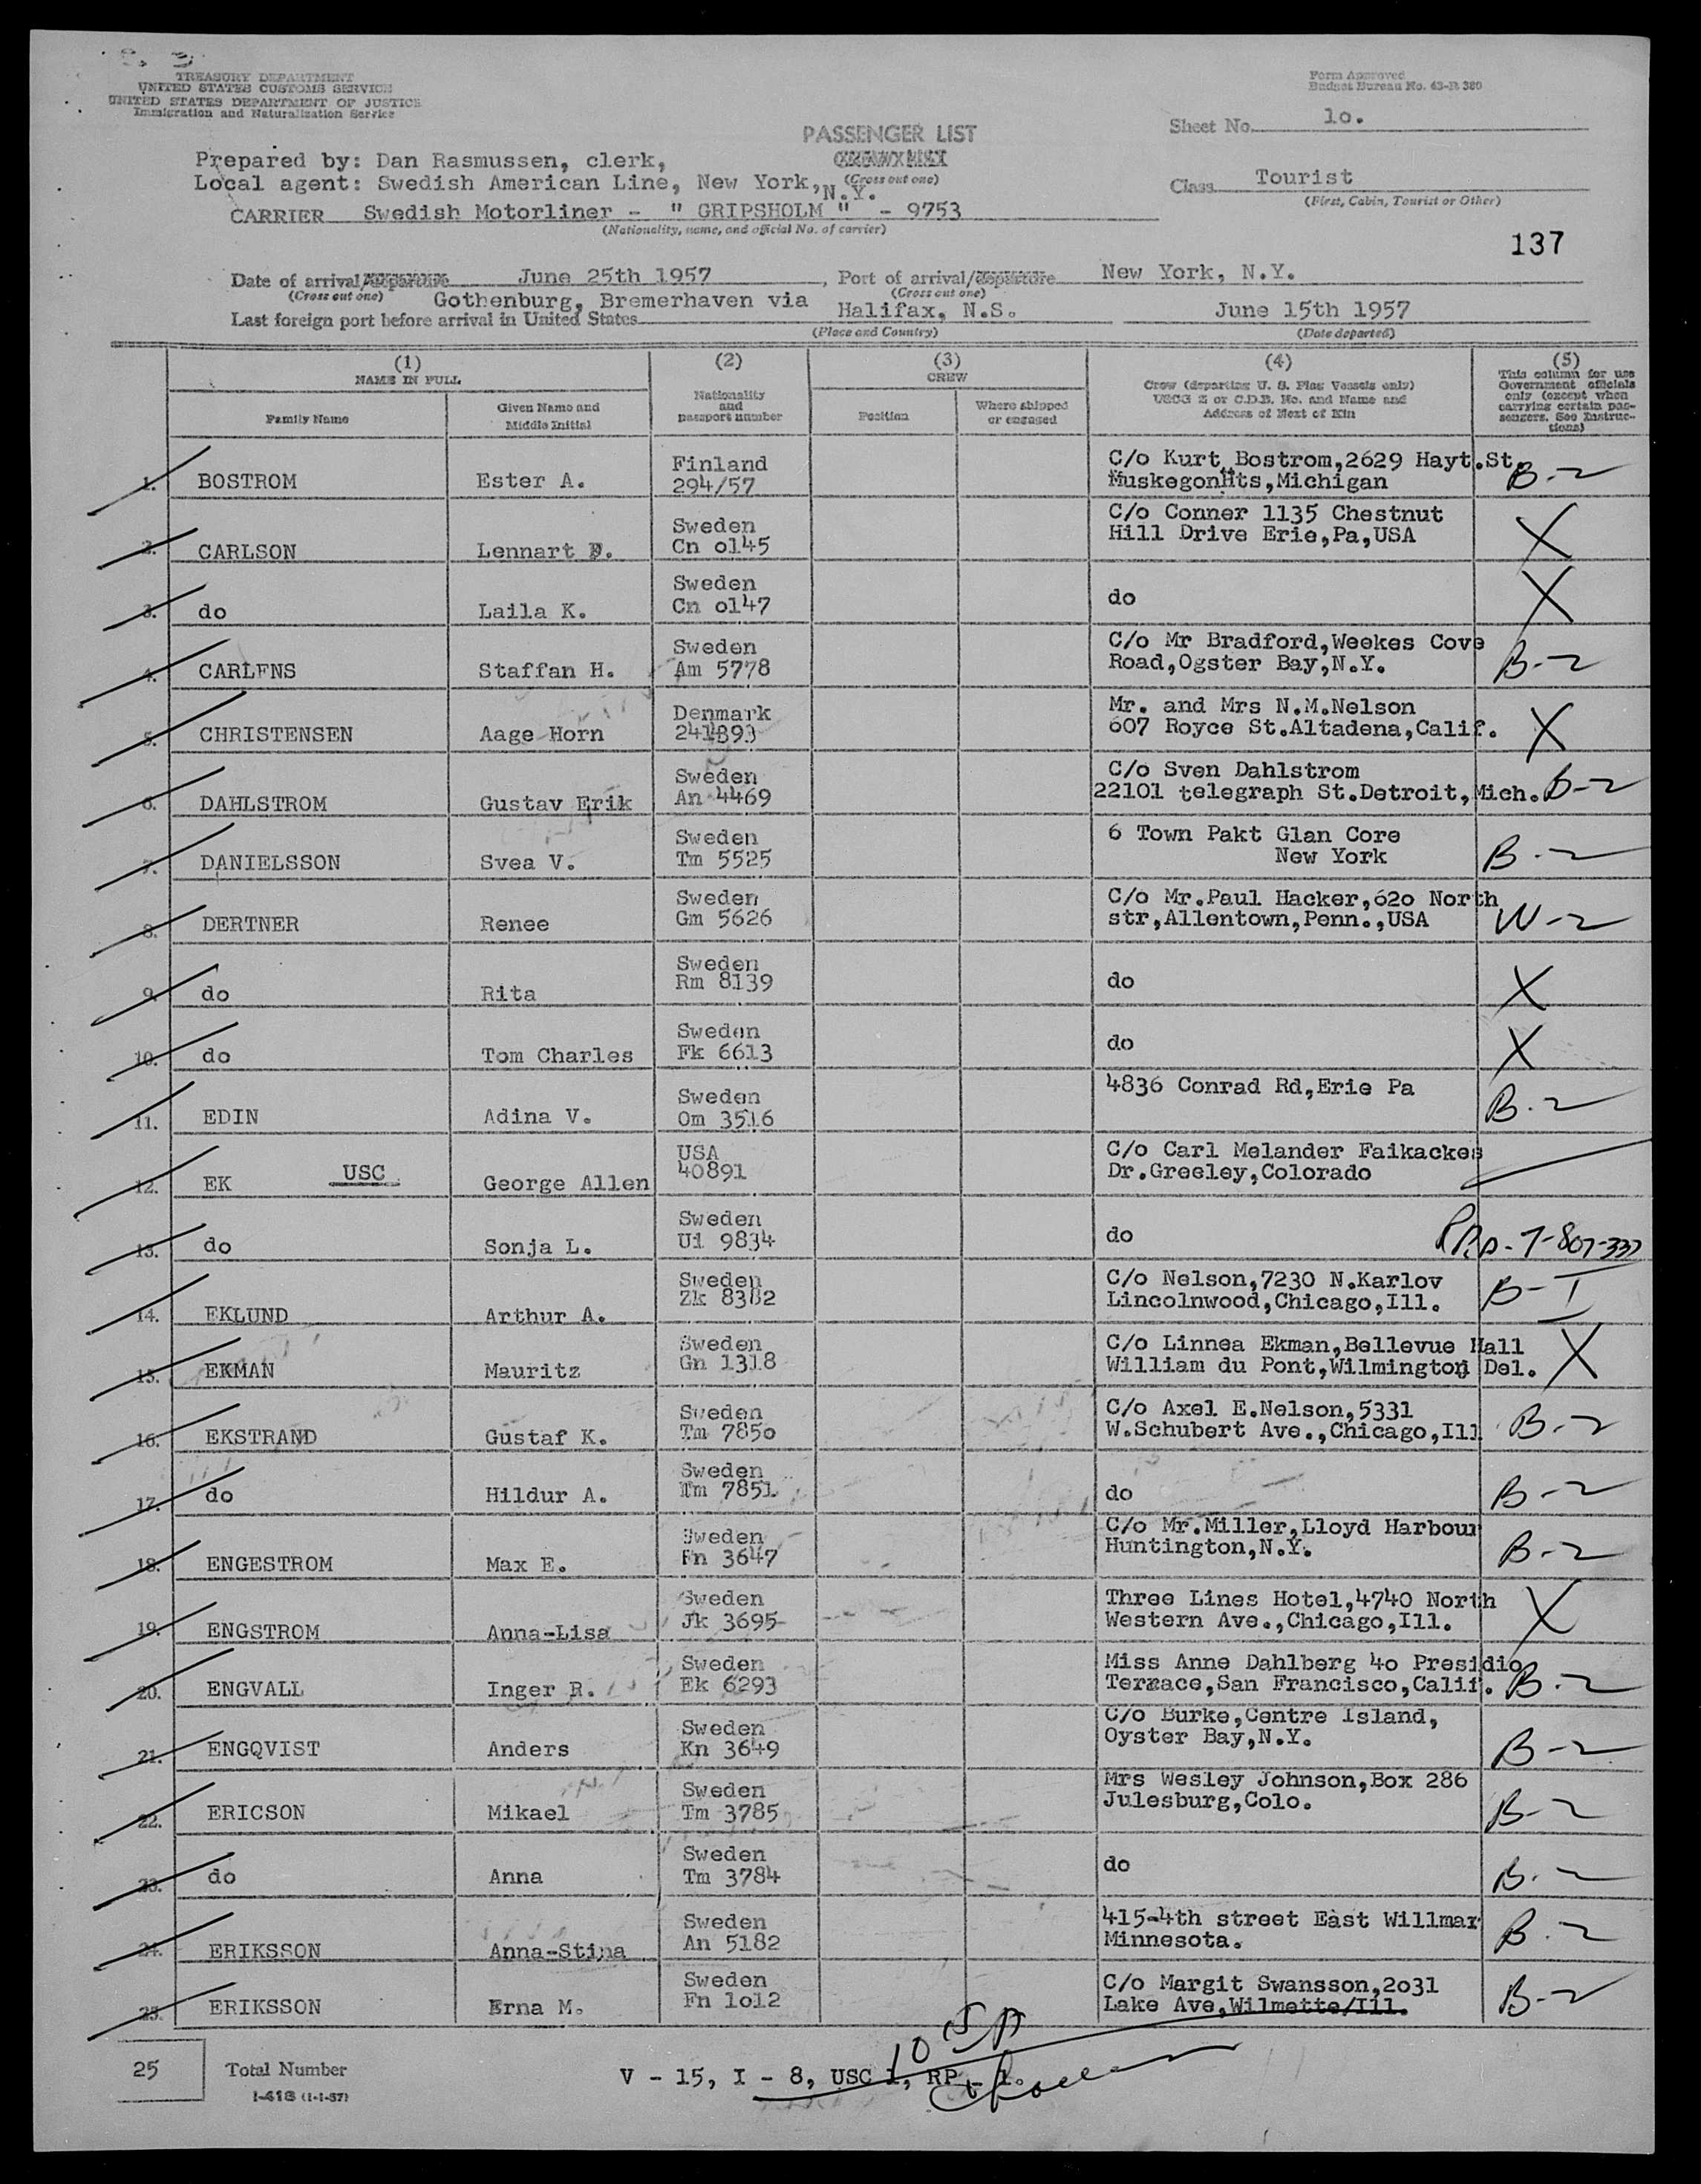 TREASURY DEPARTMENT
UNITED STATES CUSTOMS SERVICE
UNITED STATES DEPARTMENT OF JUSTICE
Immigration and Naturalization Service
Form Approved
Budget Bureau No. 43-R 380
Sheet No. 1o.
PASSENGER LIST
CREW LIST
(Cross out one)
Prepared by: Dan Rasmussen, clerk,
Local agent: Swedish American Line, New York, N.Y.
Class Tourist
(First, Cabin, Tourist or Other)
CARRIER Swedish Motorliner - " GRIPSHOLM " - 9753
(Nationality, name, and official No. of carrier)
137
Date of arrival/departure June 25th 1957, Port of arrival/departure New York, N.Y.
(Cross out one) (Cross out one)
Gothenburg, Bremerhaven via
Last foreign port before arrival in United States Halifax, N.S. June 15th 1957
(Place and Country) (Date departed)
(1) (2) (3) (4) (5)
NAME IN FULL
Family Name
Given Name and Middle Initial
Nationality and passport number
CREW
Position
Where shipped or engaged
Crew (departing U. S. Flag Vessels only)
USCG Z or C.D.B. No. and Name and
Address of Next of Kin
This column for use
Government officials
only (except when
carrying certain pas-
sengers. See Instruc-
tions)
1. BOSTROM Ester A. Finland 294/57 C/o Kurt Bostrom,2629 Hayt.St. MuskegonHts,Michigan B-2
2. CARLSON Lennart F. Sweden Cn o145 C/o Conner 1135 Chestnut Hill Drive Erie,Pa,USA X
3. do Laila K. Sweden Cn o147 do X
4. CARLENS Staffan H. Sweden Am 5778 C/o Mr Bradford,Weekes Cove Road,Ogster Bay,N.Y. B-2
5. CHRISTENSEN Aage Horn Denmark 241893 Mr. and Mrs N.M.Nelson 607 Royce St.Altadena,Calif. X
6. DAHLSTROM Gustav Erik Sweden An 4469 C/o Sven Dahlstrom 22101 telegraph St.Detroit,Mich. B-2
7. DANIELSSON Svea V. Sweden Tm 5525 6 Town Pakt Glan Core New York B-2
8. DERTNER Renee Sweden Gm 5626 C/o Mr.Paul Hacker,62o North str,Allentown,Penn.,USA W-2
9. do Rita Sweden Rm 8139 do X
10. do Tom Charles Sweden Fk 6613 do X
11. EDIN Adina V. Sweden Om 3516 4836 Conrad Rd,Erie Pa B-2
12. EK USC George Allen USA 40891 C/o Carl Melander Faikackes Dr.Greeley,Colorado
13. do Sonja L. Sweden Ui 9834 do
14. EKLUND Arthur A. Sweden Zk 8382 C/o Nelson,7230 N.Karlov Lincolnwood,Chicago,Ill. B-I
15. EKMAN Mauritz Sweden Gn 1318 C/o Linnea Ekman,Bellevue Hall William du Pont,Wilmington Del. X
16. EKSTRAND Gustaf K. Sweden Tm 785o C/o Axel E.Nelson,5331 W.Schubert Ave.,Chicago,Ill B-2
17. do Hildur A. Sweden Tm 7851 do B-2
18. ENGESTROM Max E. Sweden Fn 3647 C/o Mr.Miller,Lloyd Harbour Huntington,N.Y. B-2
19. ENGSTROM Anna-Lisa Sweden Jk 3695 Three Lines Hotel,4740 North Western Ave.,Chicago,Ill. X
20. ENGVALL Inger R. Sweden Ek 6293 Miss Anne Dahlberg 4o Presidio Terrace,San Francisco,Calif. B-2
21. ENGQVIST Anders Sweden Kn 3649 C/o Burke,Centre Island, Oyster Bay,N.Y. B-2
22. ERICSON Mikael Sweden Tm 3785 Mrs Wesley Johnson,Box 286 Julesburg,Colo. B-2
23. do Anna Sweden Tm 3784 do B-2
24. ERIKSSON Anna-Stina Sweden An 5182 415-4th street East Willmar Minnesota. B-2
25. ERIKSSON Erna M. Sweden Fn 1o12 C/o Margit Swansson,2o31 Lake Ave,Wilmette/Ill. B-2
25 Total Number
I-418 (1-1-57)
V - 15, I - 8, USC 1, RP - 1.